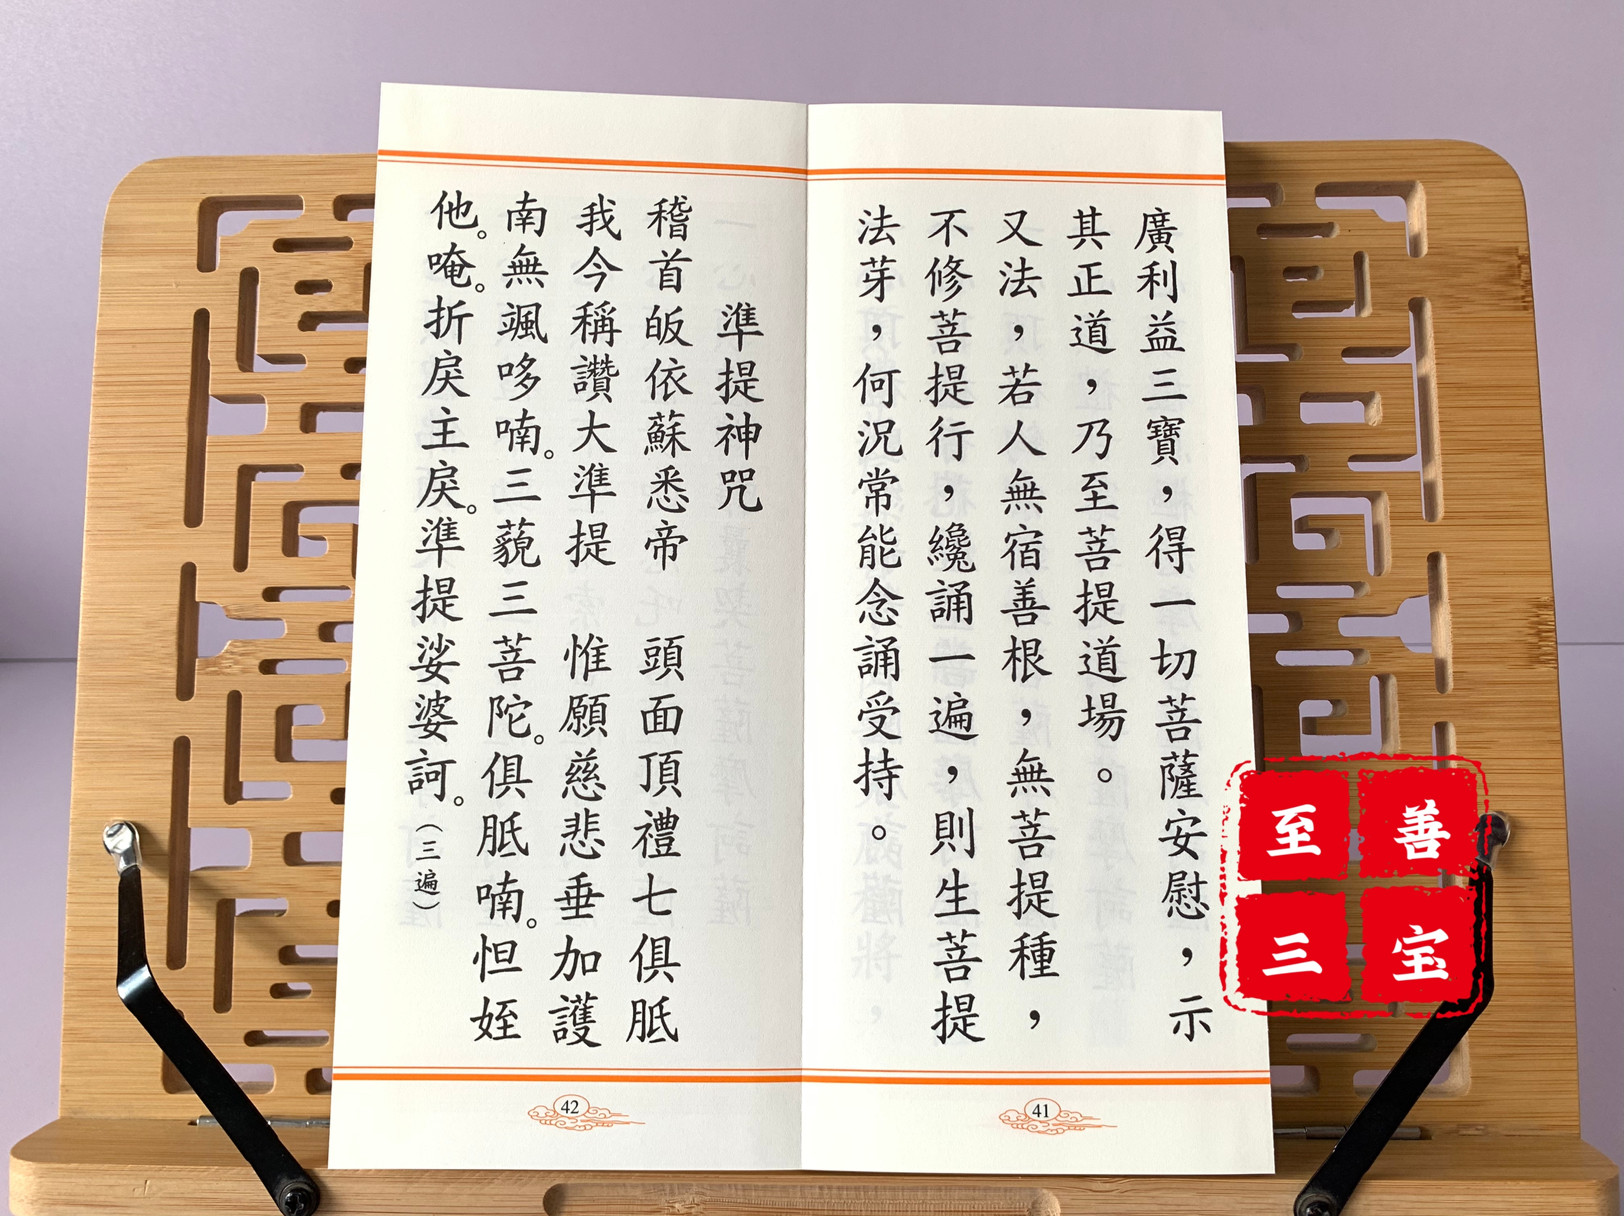 廣利益三寶，得一切菩薩安慰，示
其正道，乃至菩提道場。
又法，若人無宿善根，無菩提種，
不修菩提行，纔誦一遍，則生菩提
法芽，何況常能念誦受持。
41
準提神咒
稽首皈依蘇悉帝　頭面頂禮七俱胝
我今稱讚大準提　惟願慈悲垂加護
南無颯哆喃。三藐三菩陀。俱胝喃。怛姪
他。唵。折戾主戾。準提娑婆訶。（三遍）
42
至善
三宝